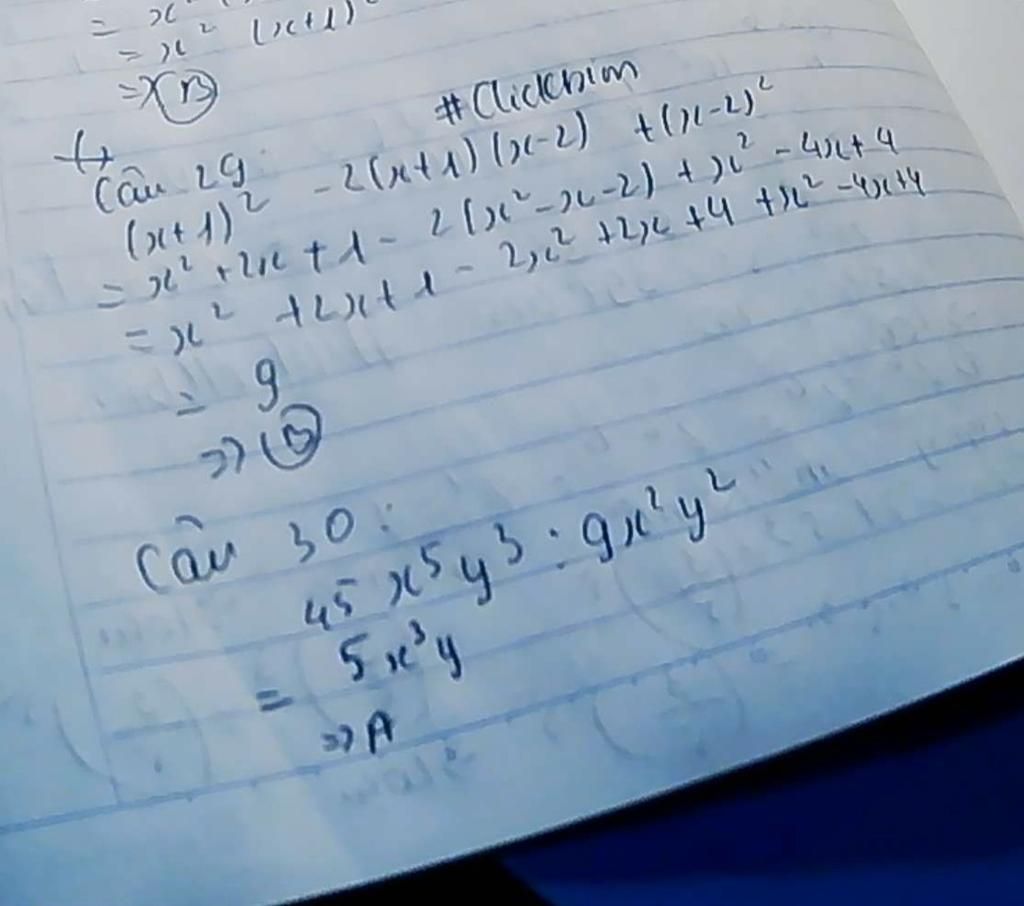 = x²
= x² (x+1)²
=> B
#Clickbim
Câu 29:
(x+1)² - 2(x+1)(x-2) + (x-2)²
= x² + 2x + 1 - 2(x² - x - 2) + x² - 4x + 4
= x² + 2x + 1 - 2x² + 2x + 4 + x² - 4x + 4
= 9
=> B
Câu 30:
45x⁵y³ : 9x²y²
= 5x³y
=> A